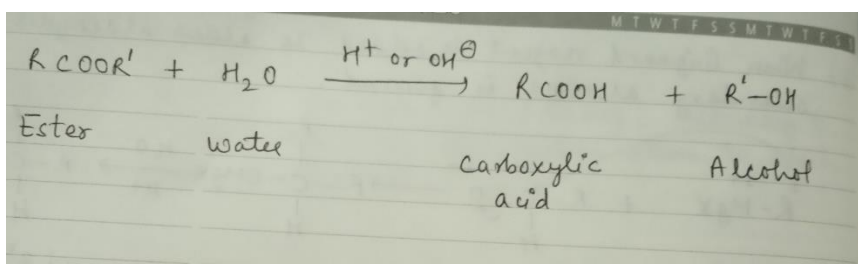 MTWTFSSMTWTFS
RCOOR' + H₂O H⁺ or OH⊖ → RCOOH + R'-OH
Ester water Carboxylic acid Alcohol